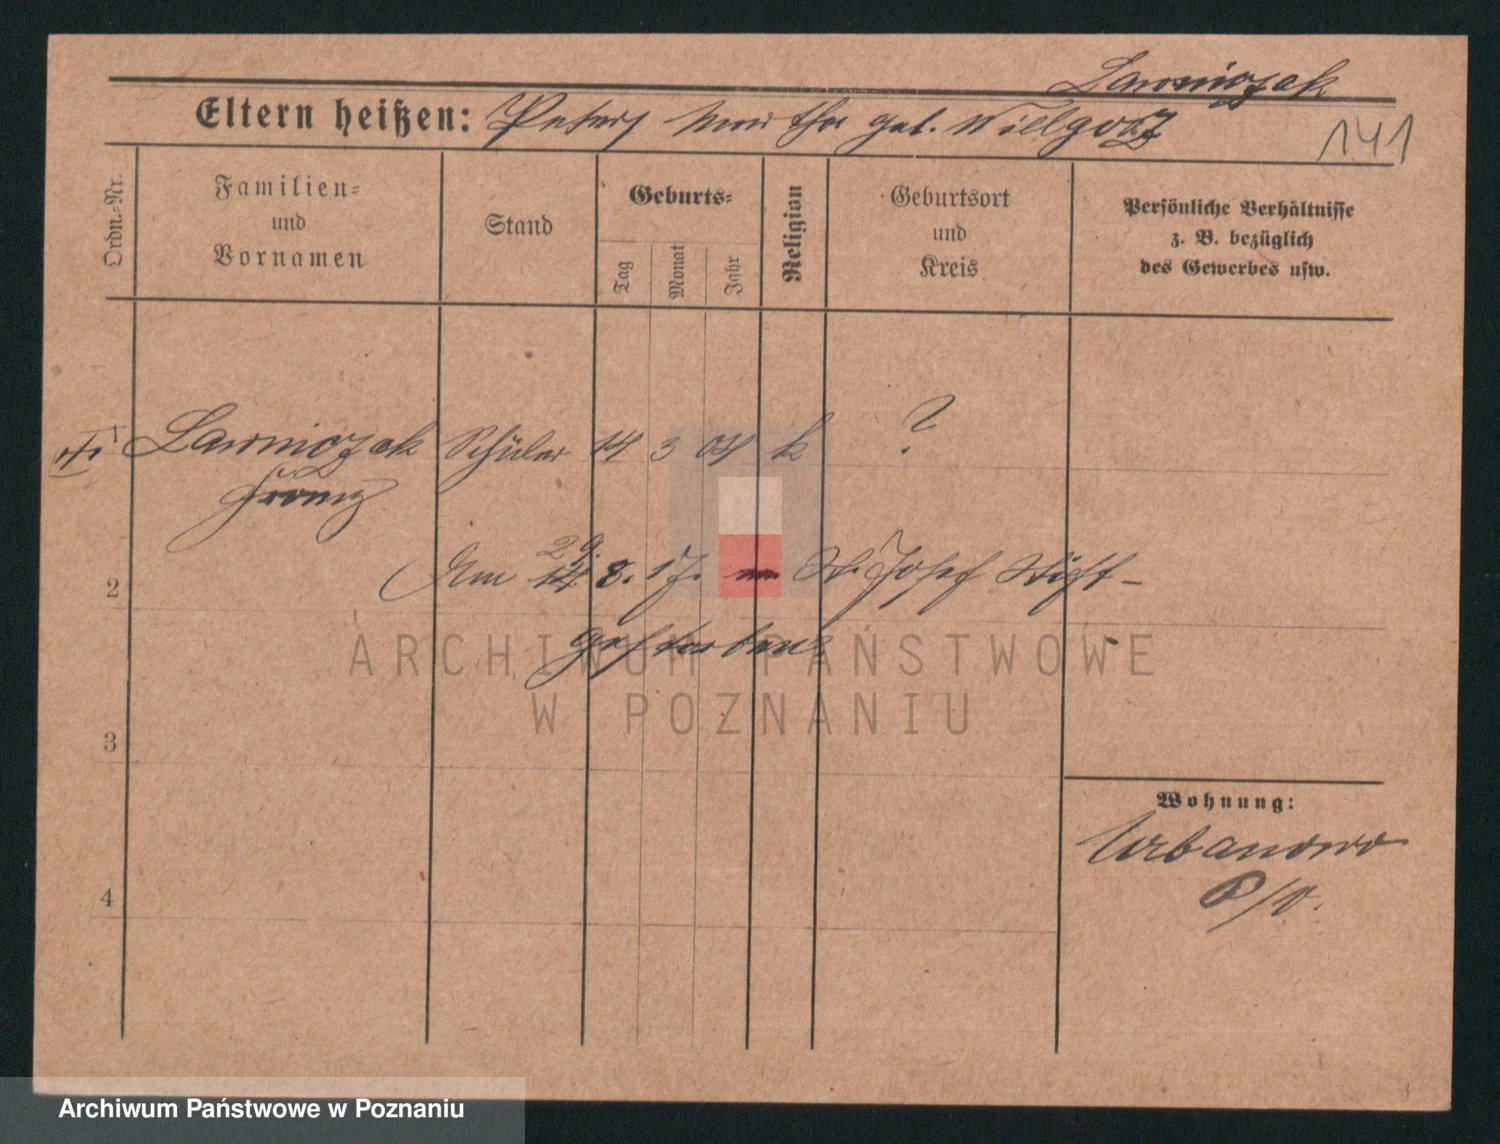 Lawniczak
Eltern heißen: Peter, Martha geb. Wielgosz
141
Ordn.-Nr.
Familien-
und
Vornamen
Stand
Geburts-
Tag
Monat
Jahr
Religion
Geburtsort
und
Kreis
Persönliche Verhältnisse
z. B. bezüglich
des Gewerbes usw.
1 Lawniczak Schüler 14 3 04 k ?
Franz
29.
2 Am 14. 8. 17. St. Josef Stift
gestorben
ARCHIWUM PAŃSTWOWE
W POZNANIU
3
Wohnung:
Urbanowo
4
Archiwum Państwowe w Poznaniu